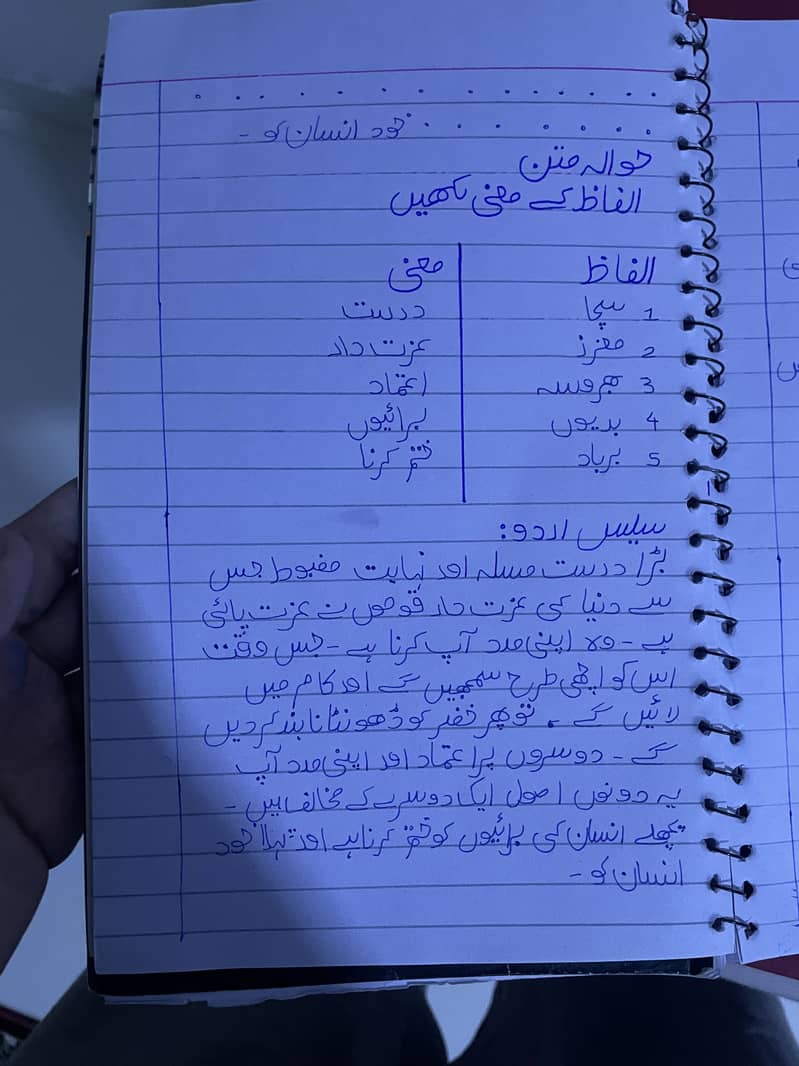 . . . . . . . . . . . .
. . . . . . خود انسان کو -
حوالہ متن
الفاظ کے معنی لکھیں
الفاظ معنی
1 سچا درست
2 معزز عزت دار
3 بھروسہ اعتماد
4 بدیوں برائیوں
5 برباد ختم کرنا
سلیس اردو:
بڑا درست مسلہ اور نہایت مضبوط جس
سے دنیا کی عزت دار قوموں نے عزت پائی
ہے - وہ اپنی مدد آپ کرنا ہے - جس وقت
اس کو اچھی طرح سمجھیں گے اور کام میں
لائیں گے ۔ تو پھر خضر کو ڈھونڈنا بند کر دیں
گے - دوسروں پر اعتماد اور اپنی مدد آپ
یہ دونوں اصول ایک دوسرے کے مخالف ہیں -
پچھلے انسان کی برائیوں کو ختم کرنا ہے اور پہلا خود
انسان کو -